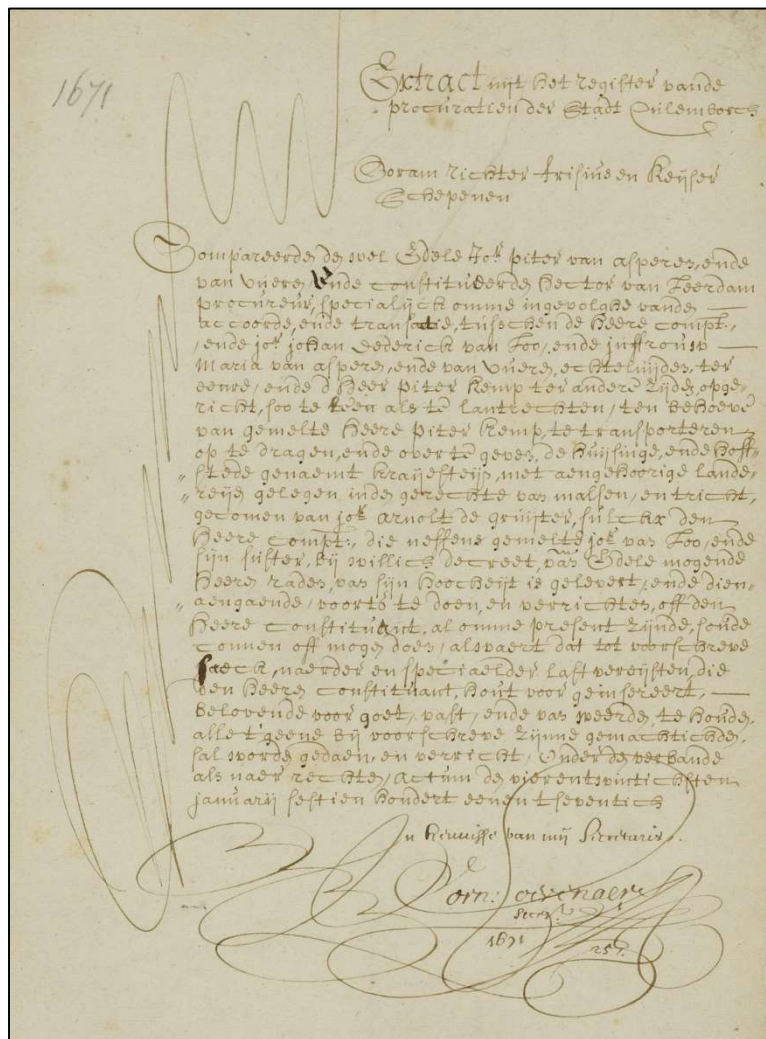 1671
Extract uijt het register vande
procuratien der Stadt Culemborch
Coram Richter Frisius en Keijser
Schepenen
Compareerde de wel Edele Jor. Piter van Asperen, ende
van Vueren, Ende constitueerde Hector van Leerdam
procureur, specialijck omme ingevolghe vande
accoorde, ende transactie, tusschen de Heere compt.,
ende jor. Johan Dederick van Loo, ende juffrouw
Maria van Asperen, ende van Vueren, echteluijden, ter
eenre, ende d'Heer Piter Kemp ter andere zijden, opge-
richt, soo te leen als te lantrechten, ten behoeve
van gemelte Heere Piter Kemp, te transporteren
op te dragen, ende over te geven, de huijsinge, ende hoff-
stede genaemt Kraijesteijn, met aengehoorige lande-
reijen gelegen inden gerechte van Malsen, en Tricht,
gecomen van jor. Arnolt de Gruijter, sulckx den
Heere Compt., die neffens gemelte jor. van Loo, ende
sijn suster, bij willich decreet, vande Edele mogende
Heeren Raden, van sijn Hoocheijt is gelevert, ende dien-
aengaende, voorts te doen, en verrichten, off den
Heere Constituant, al omme present zijnde, soude
connen off mogen doen, alwaert dat tot voorschreve
saeck, naerder en speciaelder last vereijsten, die
den Heere constituant, hout voor geinsereert,
belovende voor goet, vast, ende van weerden, te houden,
alle t'geene bij voorschreve zijnne gemachtichde,
sal worden gedaen, en verricht, Onder de verbande
als naer rechte, Actum de vierentwintichsten
januarij sestien hondert eenen tseventich
In kennisse van mij Secretaris.
Corn:
Secrs.
1671